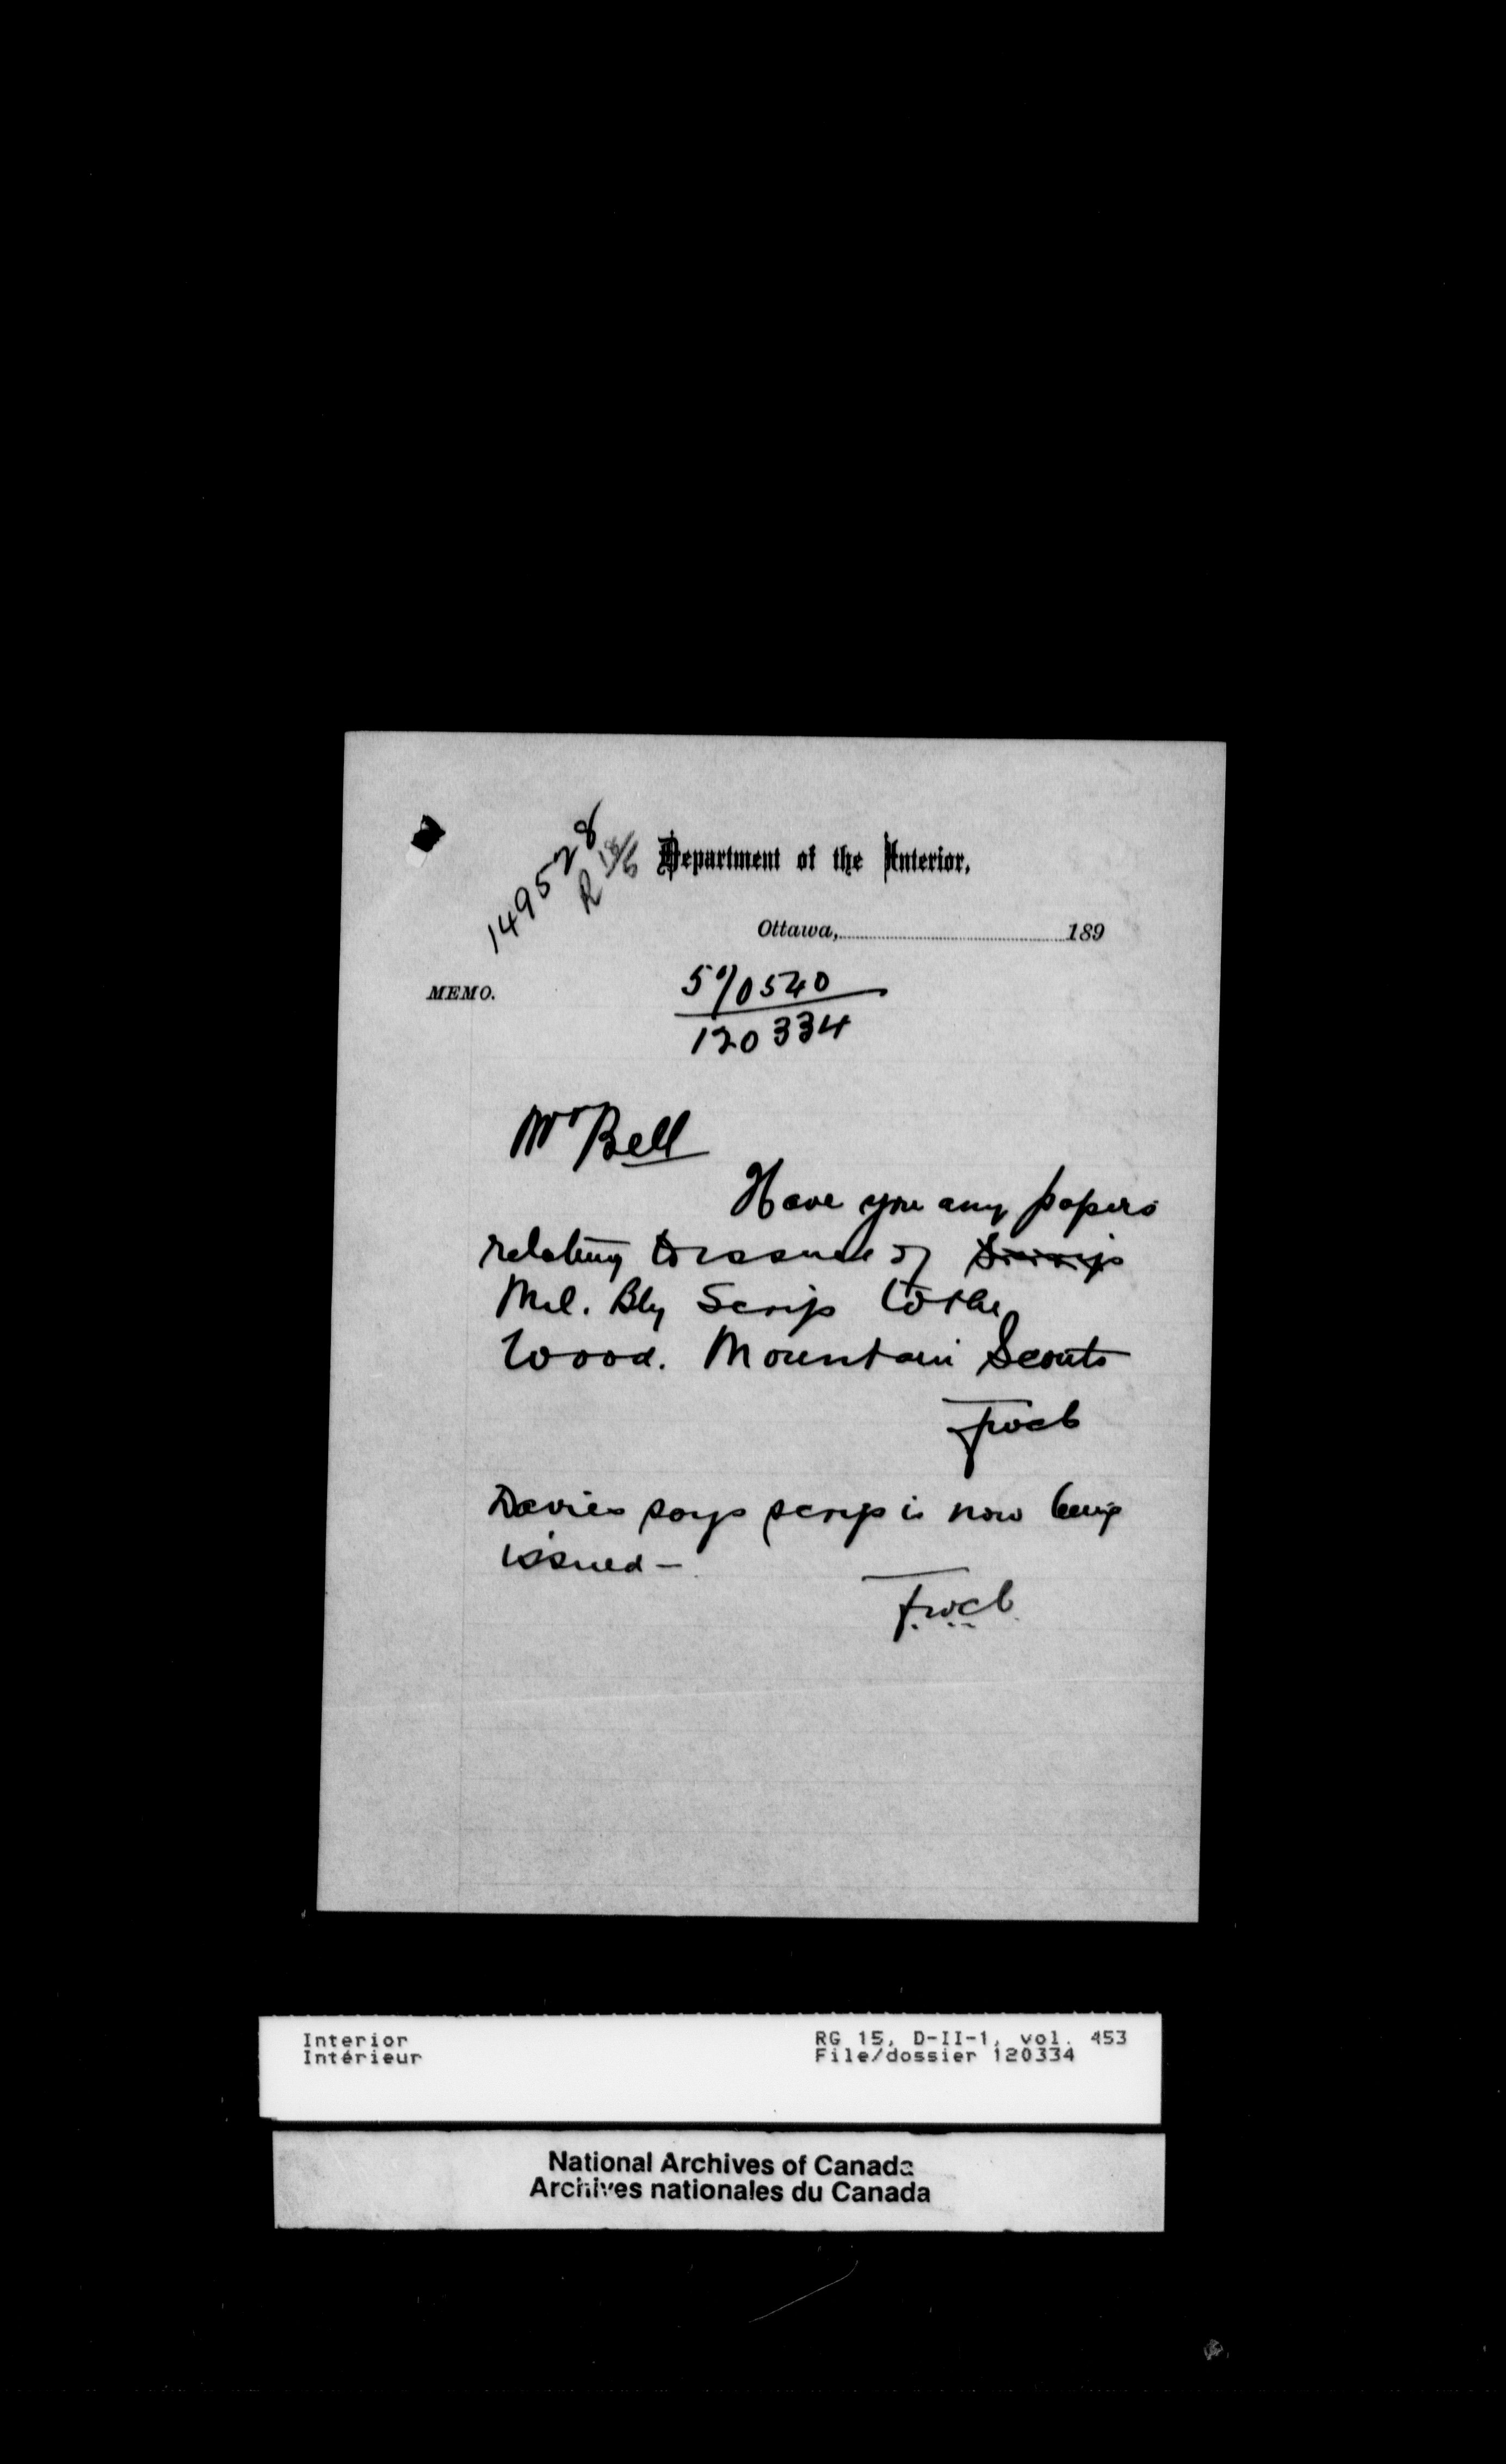 149528
R
Department of the Interior,
Ottawa, 189
MEMO.
590540
120334
Mr Bell
Have you any papers
relating to issue of Scrip
Mil. Bty Scrip to the
Wood. Mountain Scouts
Davies says scrip is now being
issued —
Interior
Intérieur
RG 15, D-II-1, vol. 453
File/dossier 120334
National Archives of Canada
Archives nationales du Canada